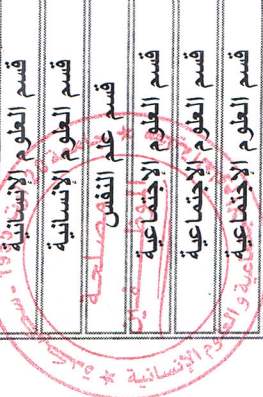 قسم العلوم الإنسانية
قسم العلوم الإنسانية
قسم علم النفس
قسم العلوم الاجتماعية
قسم العلوم الاجتماعية
قسم العلوم الاجتماعية
مصلحة